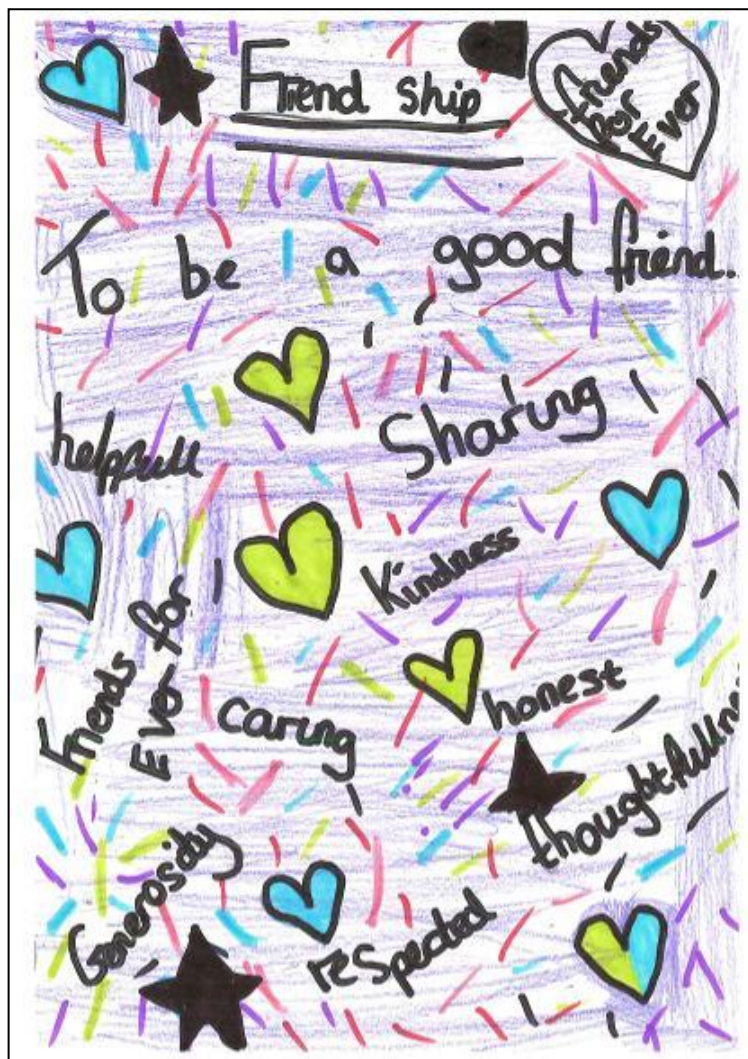 Friend ship
friends
for
Ever
To be a good friend..
helpfull
Sharing
Kindness
Friends
Ever for
caring
honest
thoughtfullne
Generosity
respected